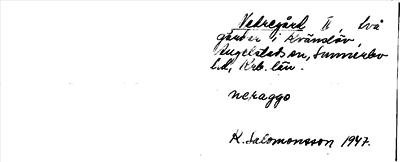 Vedregård II, två
gårdar i Kvänslöv,
Angelstads sn, Sunnerbo
hd, Krb. län.
neraggo
K. Salomonsson 1947.